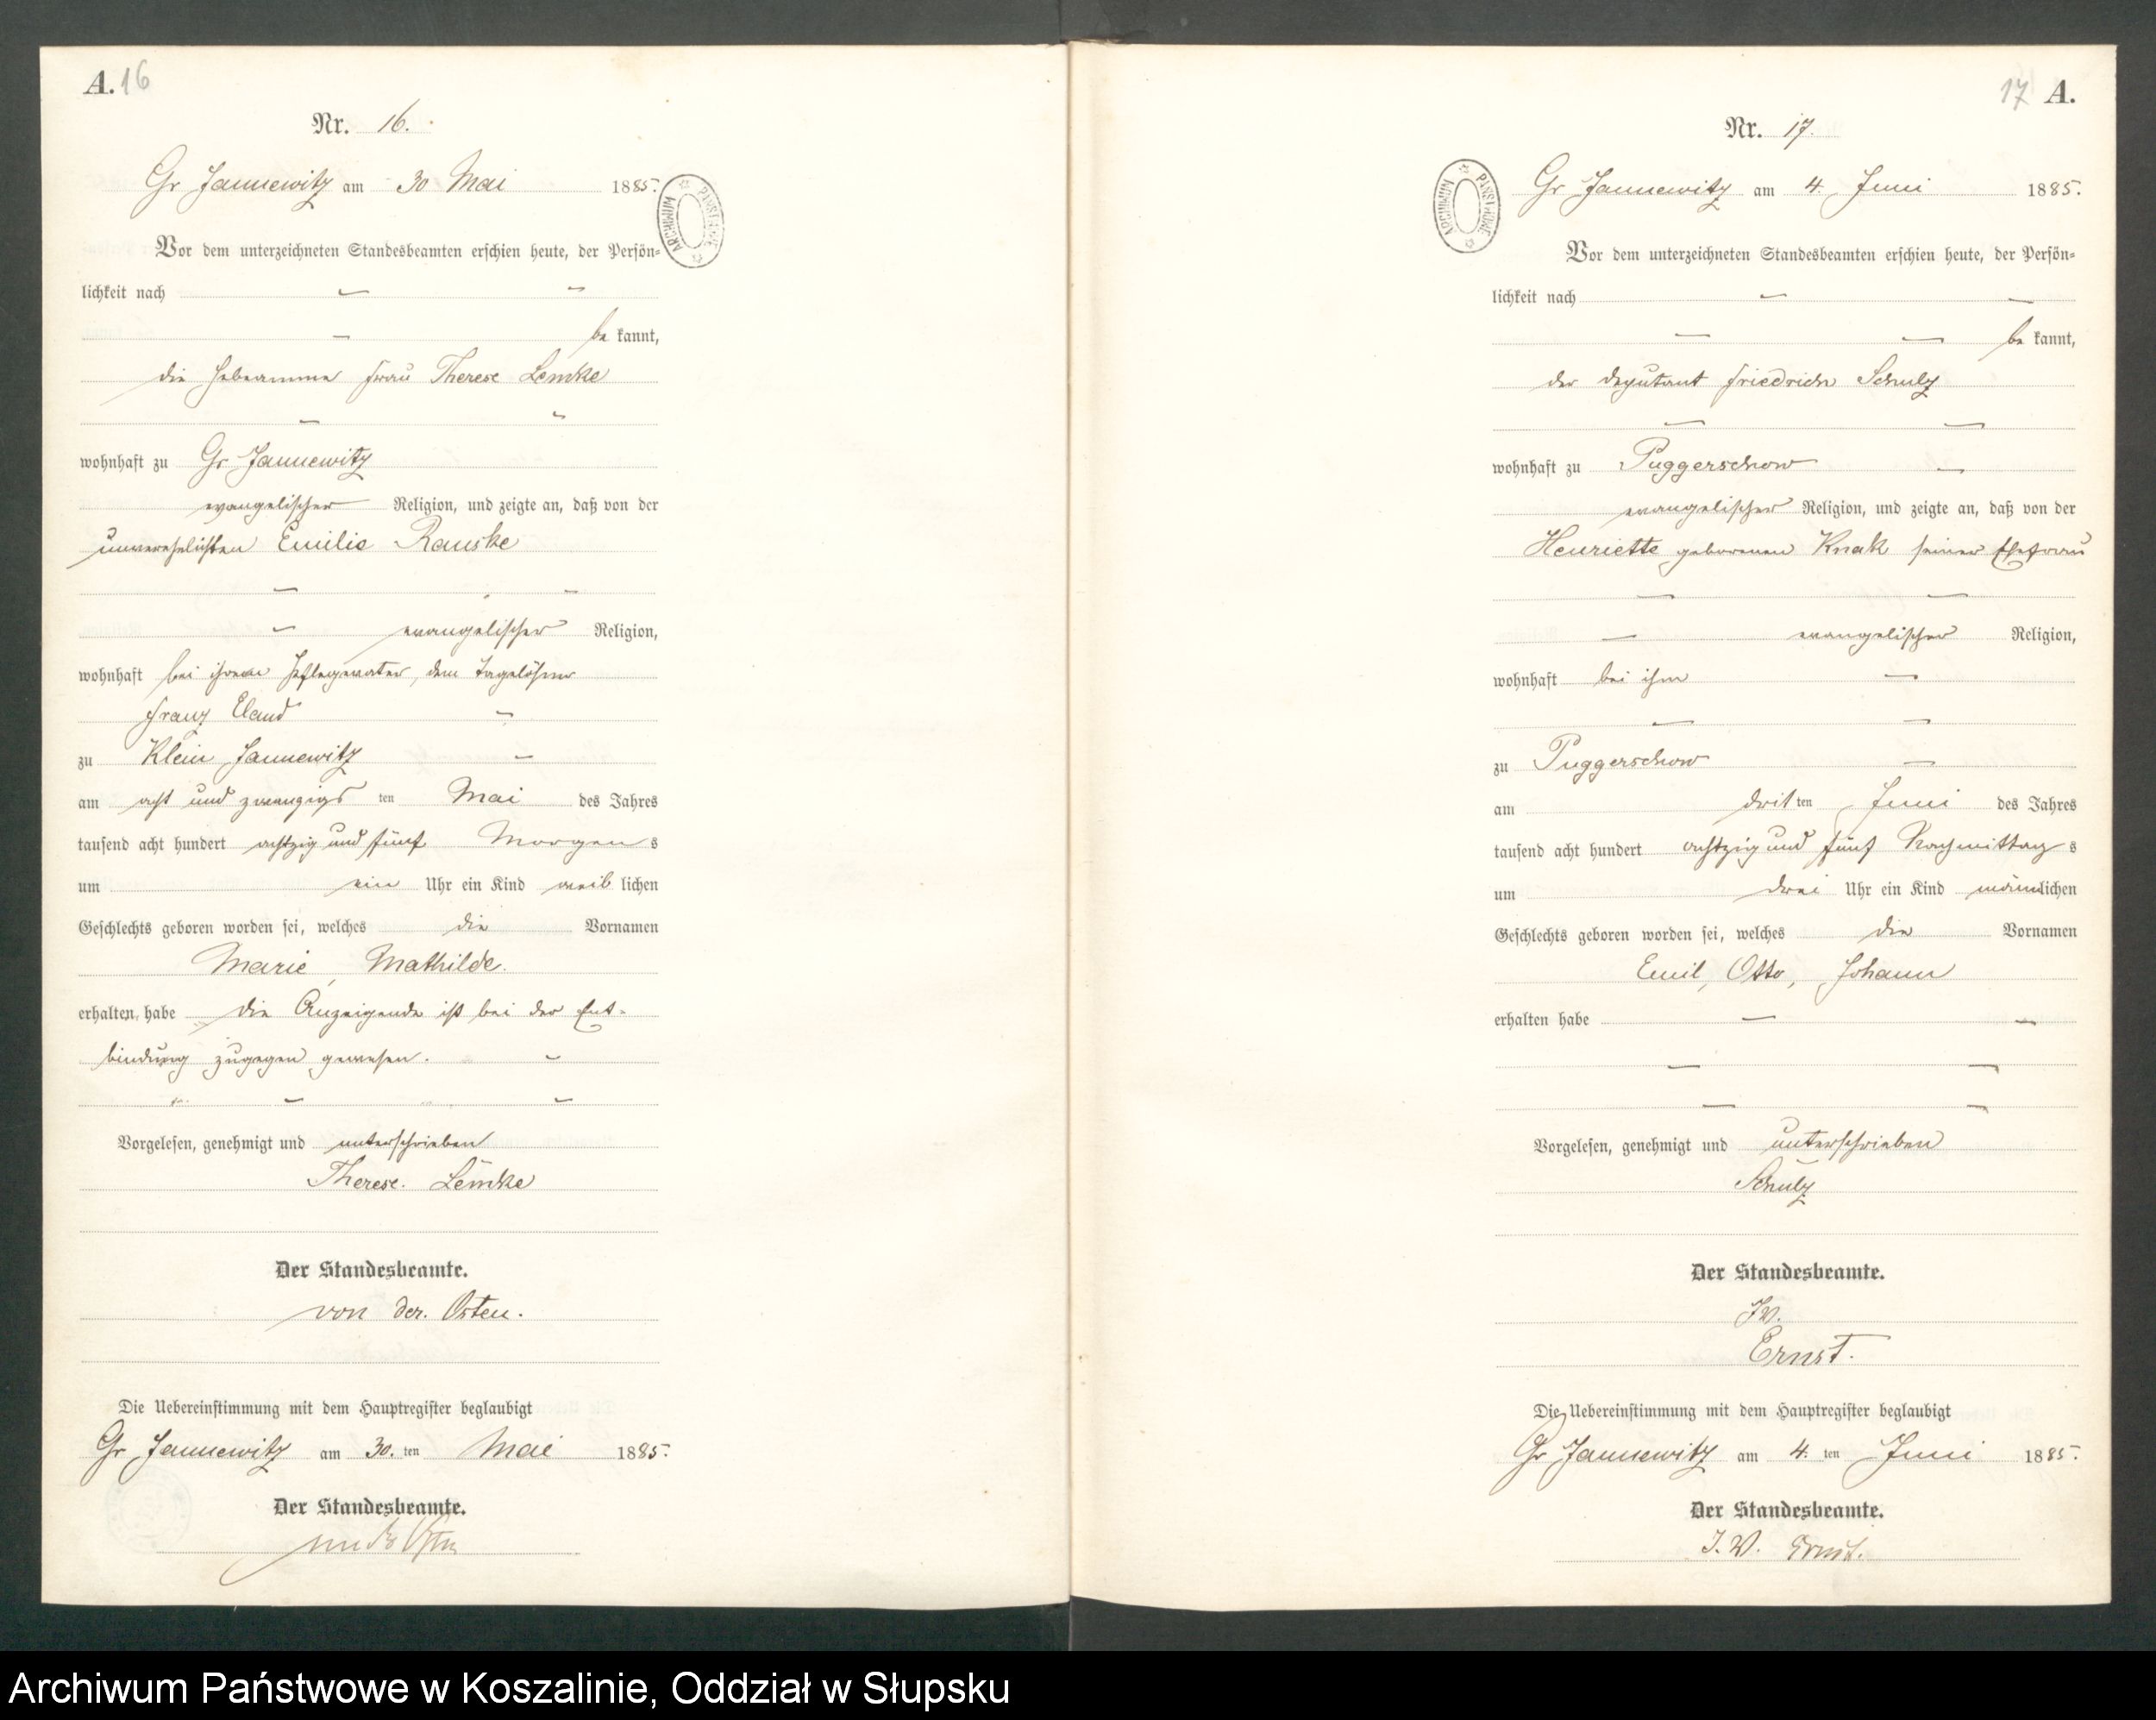 A. 16
Nr. 16.
Gr Jannewitz am 30 Mai 1885.
ARCHIWUM PAŃSTWOWE
Vor dem unterzeichneten Standesbeamten erschien heute, der Persön-
lichkeit nach
be kannt,
die Hebeamme Frau Therese Lemke
wohnhaft zu Gr Jannewitz
evangelischer Religion, und zeigte an, daß von der
unverehelichten Emilie Rauske
evangelischer Religion,
wohnhaft bei ihrem Pflegevater, dem Tagelöhner
Franz Eland
zu Klein Jannewitz
am acht und zwanzigs ten Mai des Jahres
tausend acht hundert achtzig und fünf Morgen s
um ein Uhr ein Kind weib lichen
Geschlechts geboren worden sei, welches die Vornamen
Marie, Mathilde.
erhalten habe Die Anzeigende ist bei der Ent-
bindung zugegen gewesen.
Vorgelesen, genehmigt und unterschrieben
Therese. Lemke
Der Standesbeamte.
von der. Osten.
Die Uebereinstimmung mit dem Hauptregister beglaubigt
Gr Jannewitz am 30. ten Mai 1885.
Der Standesbeamte.
von der Osten
17 A.
Nr. 17.
ARCHIWUM PAŃSTWOWE
Gr Jannewitz am 4. Juni 1885.
Vor dem unterzeichneten Standesbeamten erschien heute, der Persön-
lichkeit nach
be kannt,
der Deputant Friedrich Schulz
wohnhaft zu Puggerschow
evangelischer Religion, und zeigte an, daß von der
Henriette geborenen Knak seiner Ehefrau
evangelischer Religion,
wohnhaft bei ihm
zu Puggerschow
am drit ten Juni des Jahres
tausend acht hundert achtzig und fünf Nachmittag s
um drei Uhr ein Kind männlichen
Geschlechts geboren worden sei, welches die Vornamen
Emil, Otto, Johann
erhalten habe
Vorgelesen, genehmigt und unterschrieben
Schulz
Der Standesbeamte.
J.V.
Ernst.
Die Uebereinstimmung mit dem Hauptregister beglaubigt
Gr Jannewitz am 4. ten Juni 1885.
Der Standesbeamte.
J.V. Ernst.
Archiwum Państwowe w Koszalinie, Oddział w Słupsku